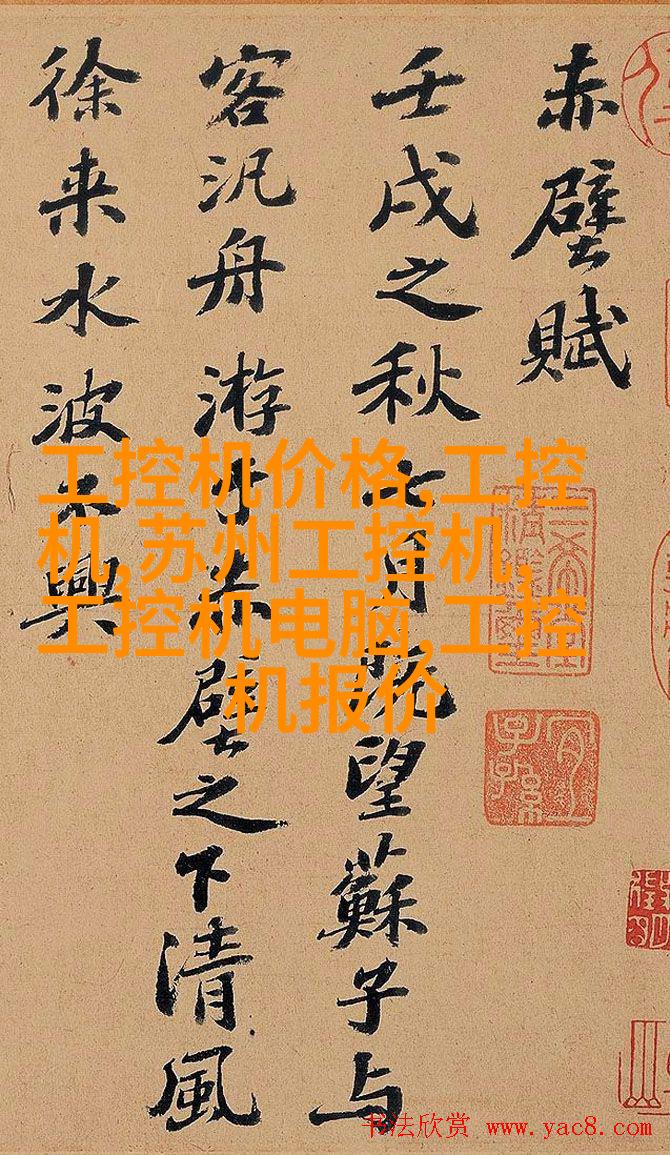 赤壁賦
壬戌之秋七月既望蘇子与
客汎舟游于赤壁之下清風
徐来水波不興
工控机价格,工控
机,苏州工控机,
工控机电脑,工控
机报价
书法欣赏 www.yac8.com